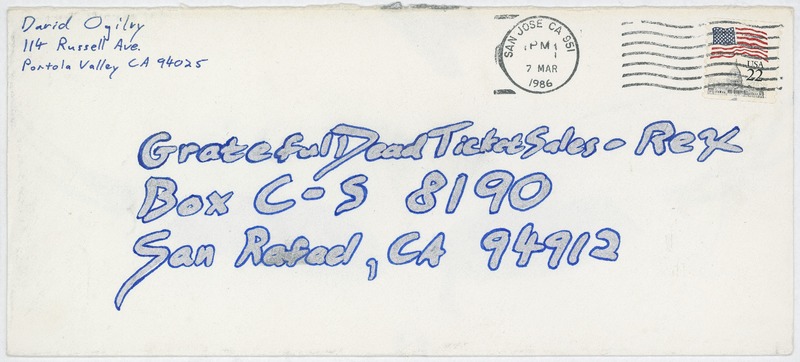 David Ogilvy
114 Russell Ave.
Portola Valley CA 94025
SAN JOSE CA 951
PM
7 MAR
1986
USA
22
Grateful Dead Ticket Sales - Rex
Box C-S 8190
San Rafael, CA 94912